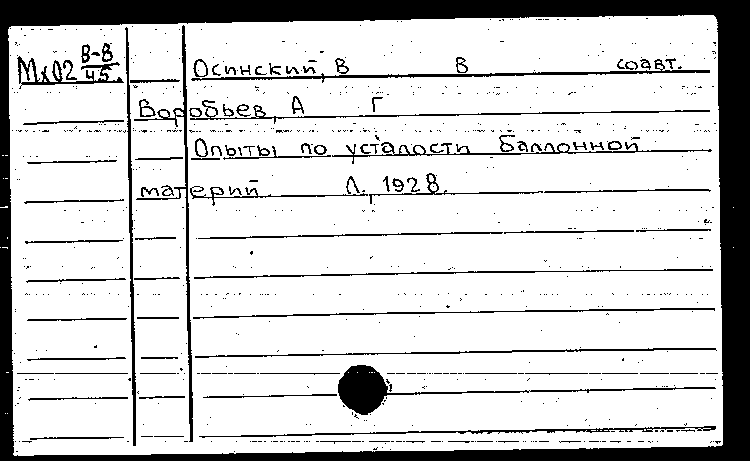 Мх02 В-8/45. Осинский, В В соавт.
Воробьев, А Г
Опыты по усталости баллонной
материй Л., 1928.